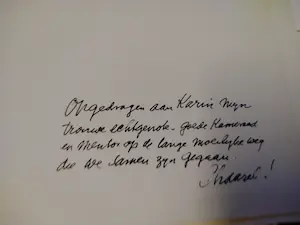 Opgedragen aan Karin mijn
trouwe echtgenote - goede Kameraad
en Mentor op de lange moeilijke weg
die we samen zijn gegaan.